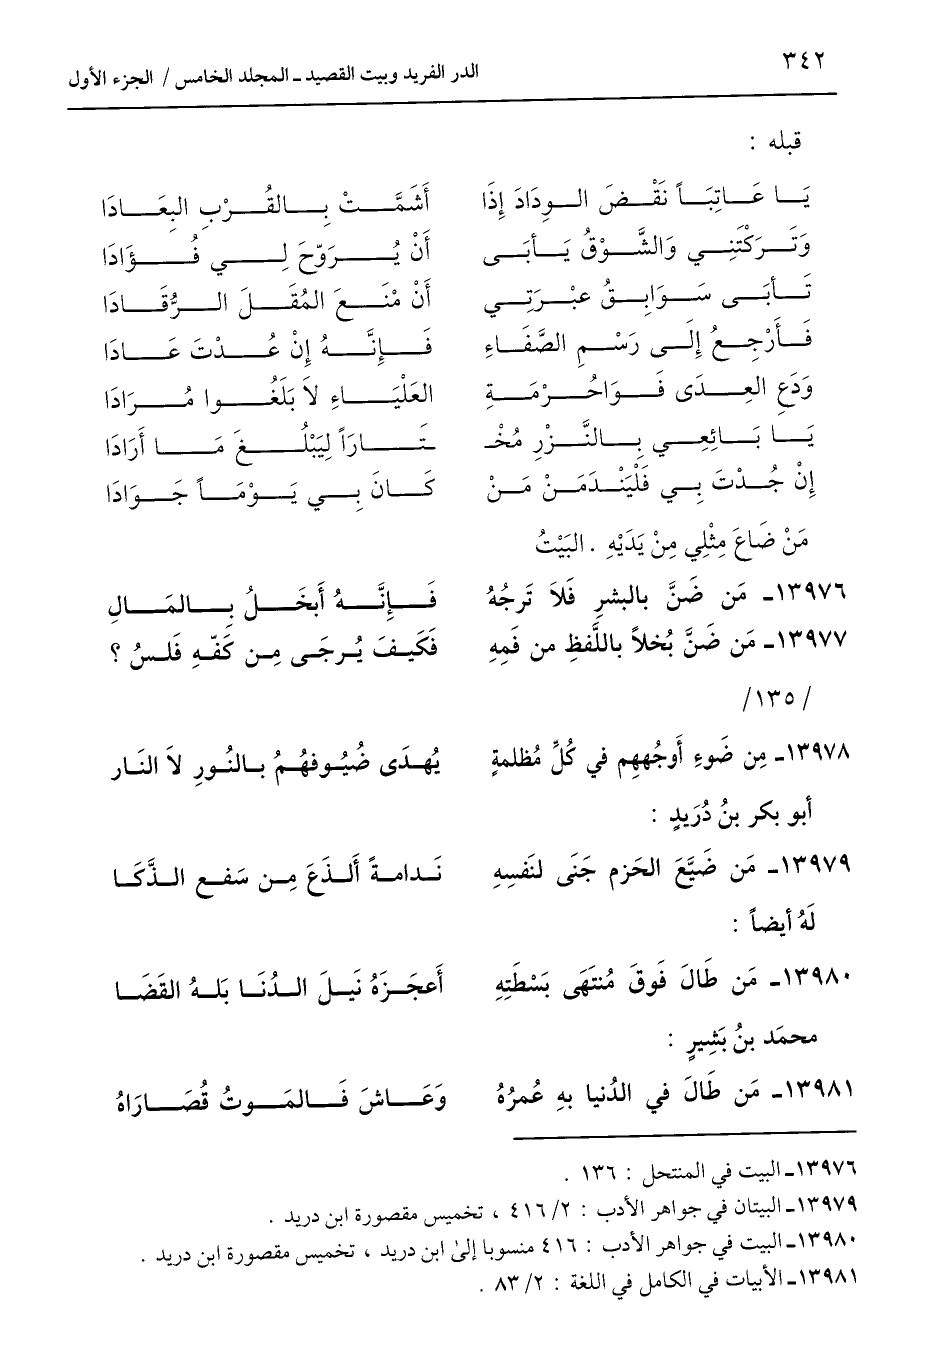 ٣٤٢
الدر الفريد وبيت القصيد ـ المجلد الخامس / الجزء الأول
قبله :
يَا عَاتِبَاً نَقْضَ الودَادَ إِذَا أَشَمَّتْ بِالقُرْبِ البعَادَا
وَتَرَكْتَنِي وَالشَّوْقُ يَأبَى أَنْ يُرَوّحَ لِي فُؤَادَا
تَأبَى سَوَابِقُ عبْرَتِي أَنْ مْنَعَ المُقَلَ الرُّقَادَا
فَأَرْجِعُ إِلَى رَسْمِ الصَّفَاءِ فَإِنَّهُ إِنْ عُدْتَ عَادَا
وَدَعِ العِدَى فَوَاحُرْمَةِ العَلْيَاءِ لاَ بَلَغُوا مُرَادَا
يَا بَائِعِي بِالنَّزْرِ مُخْـ ـتَارَاً لِيَبْلُغَ مَا أَرَادَا
إِنْ جُدْتَ بِي فَلْيَنْدَمَنْ مَنْ كَانَ بِي يَوْمَاً جَوَادَا
مَنْ ضَاعَ مِثْلِي مِنْ يَدَيْهِ . البَيْتُ
١٣٩٧٦ـ مَن ضَنَّ بالبشرِ فَلاَ تَرجُهُ فَإِنَّهُ أَبخَلُ بِالمَالِ
١٣٩٧٧ـ مَن ضَنَّ بُخلاً باللَّفظِ من فَمِهِ فَكَيفَ يُرجَى مِن كَفّهِ فَلسُ ؟
/ ١٣٥/
١٣٩٧٨ـ مِن ضَوءِ أَوجُههِم في كُلِّ مُظلمةٍ يُهدَى ضُيُوفهُمُ بالنُورِ لاَ النَار
أبو بكر بنُ دُرَيدٍ :
١٣٩٧٩ـ مَن ضَيَّعَ الحَزم جَنَى لنَفسِهِ نَدامةً أَلذَعَ مِن سَفعِ الذَّكَا
لَهُ أيضاً :
١٣٩٨٠ـ مَن طَالَ فَوقَ مُنتَهَى بَسْطَتِهِ أَعجَزَهُ نَيلَ الدُنَا بَلهُ القَضَا
محمَد بنُ بَشِيرٍ :
١٣٩٨١ـ مَن طَالَ في الدُنيا بهِ عُمرُهُ وَعَاشَ فَالمَوتُ قُصَارَاهُ
١٣٩٧٦ـ البيت في المنتحل : ١٣٦ .
١٣٩٧٩ـ البيتان في جواهر الأدب : ٢/ ٤١٦ ، تخميس مقصورة ابن دريد .
١٣٩٨٠ـ البيت في جواهر الأدب : ٤١٦ منسوبا إلىٰ ابن دريد ، تخميس مقصورة ابن دريد .
١٣٩٨١ـ الأبيات في الكامل في اللغة : ٢/ ٨٣ .